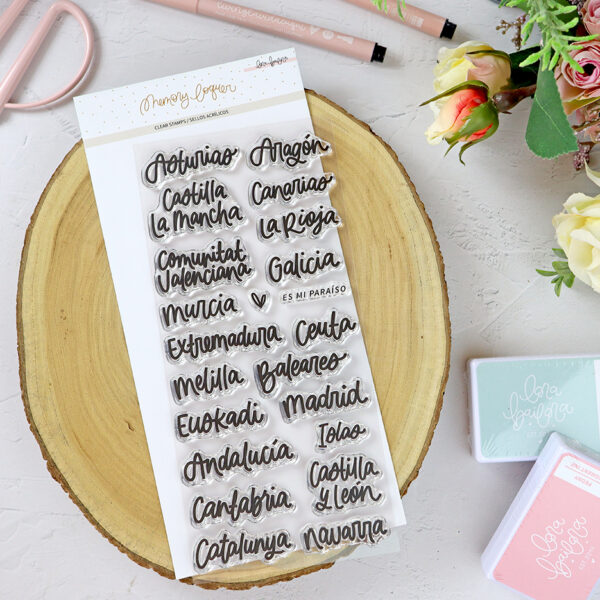 lora bailora
Memory Loquer
CLEAR STAMPS / SELLOS ACRÍLICOS
Asturias
Aragón
Castilla
La Mancha
Canarias
La Rioja
Comunitat
Valenciana
Galicia
Murcia
ES MI PARAÍSO
Extremadura
Ceuta
Melilla
Baleares
Euskadi
Madrid
Andalucía
Islas
Cantabria
Castilla
y León
Catalunya
navarra
lora
bailora
lora
bailora